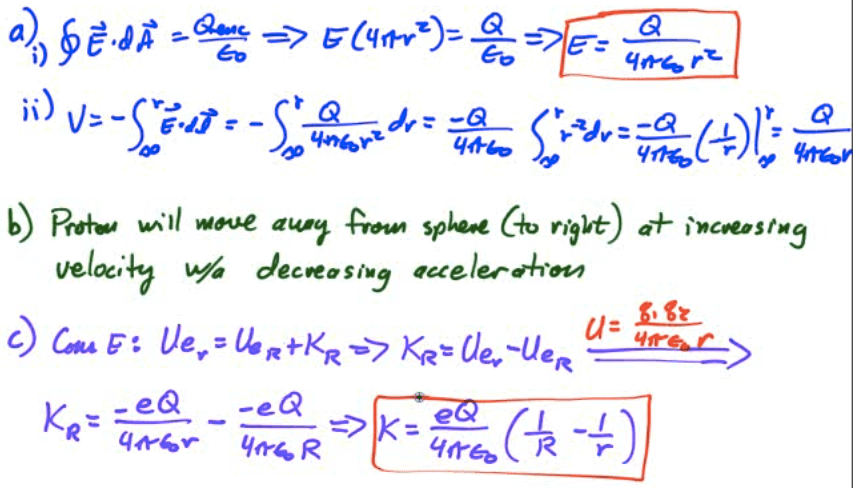 a) i) ∮ E⃗·dA⃗ = Qenc/ε₀ ⇒ E(4πr²) = Q/ε₀ ⇒ E = Q/(4πε₀r²)
ii) V = -∫_∞^r E⃗·dl⃗ = -∫_∞^r Q/(4πε₀r²) dr = -Q/(4πε₀) ∫_∞^r r⁻²dr = -Q/(4πε₀) (-1/r)|_∞^r = Q/(4πε₀r)
b) Proton will move away from sphere (to right) at increasing
velocity w/a decreasing acceleration
c) Cons E: Ue_r = Ue_R + K_R ⇒ K_R = Ue_r - Ue_R U = q₁q₂/(4πε₀r) ⇒
K_R = -eQ/(4πε₀r) - -eQ/(4πε₀R) ⇒ K = eQ/(4πε₀) (1/R - 1/r)